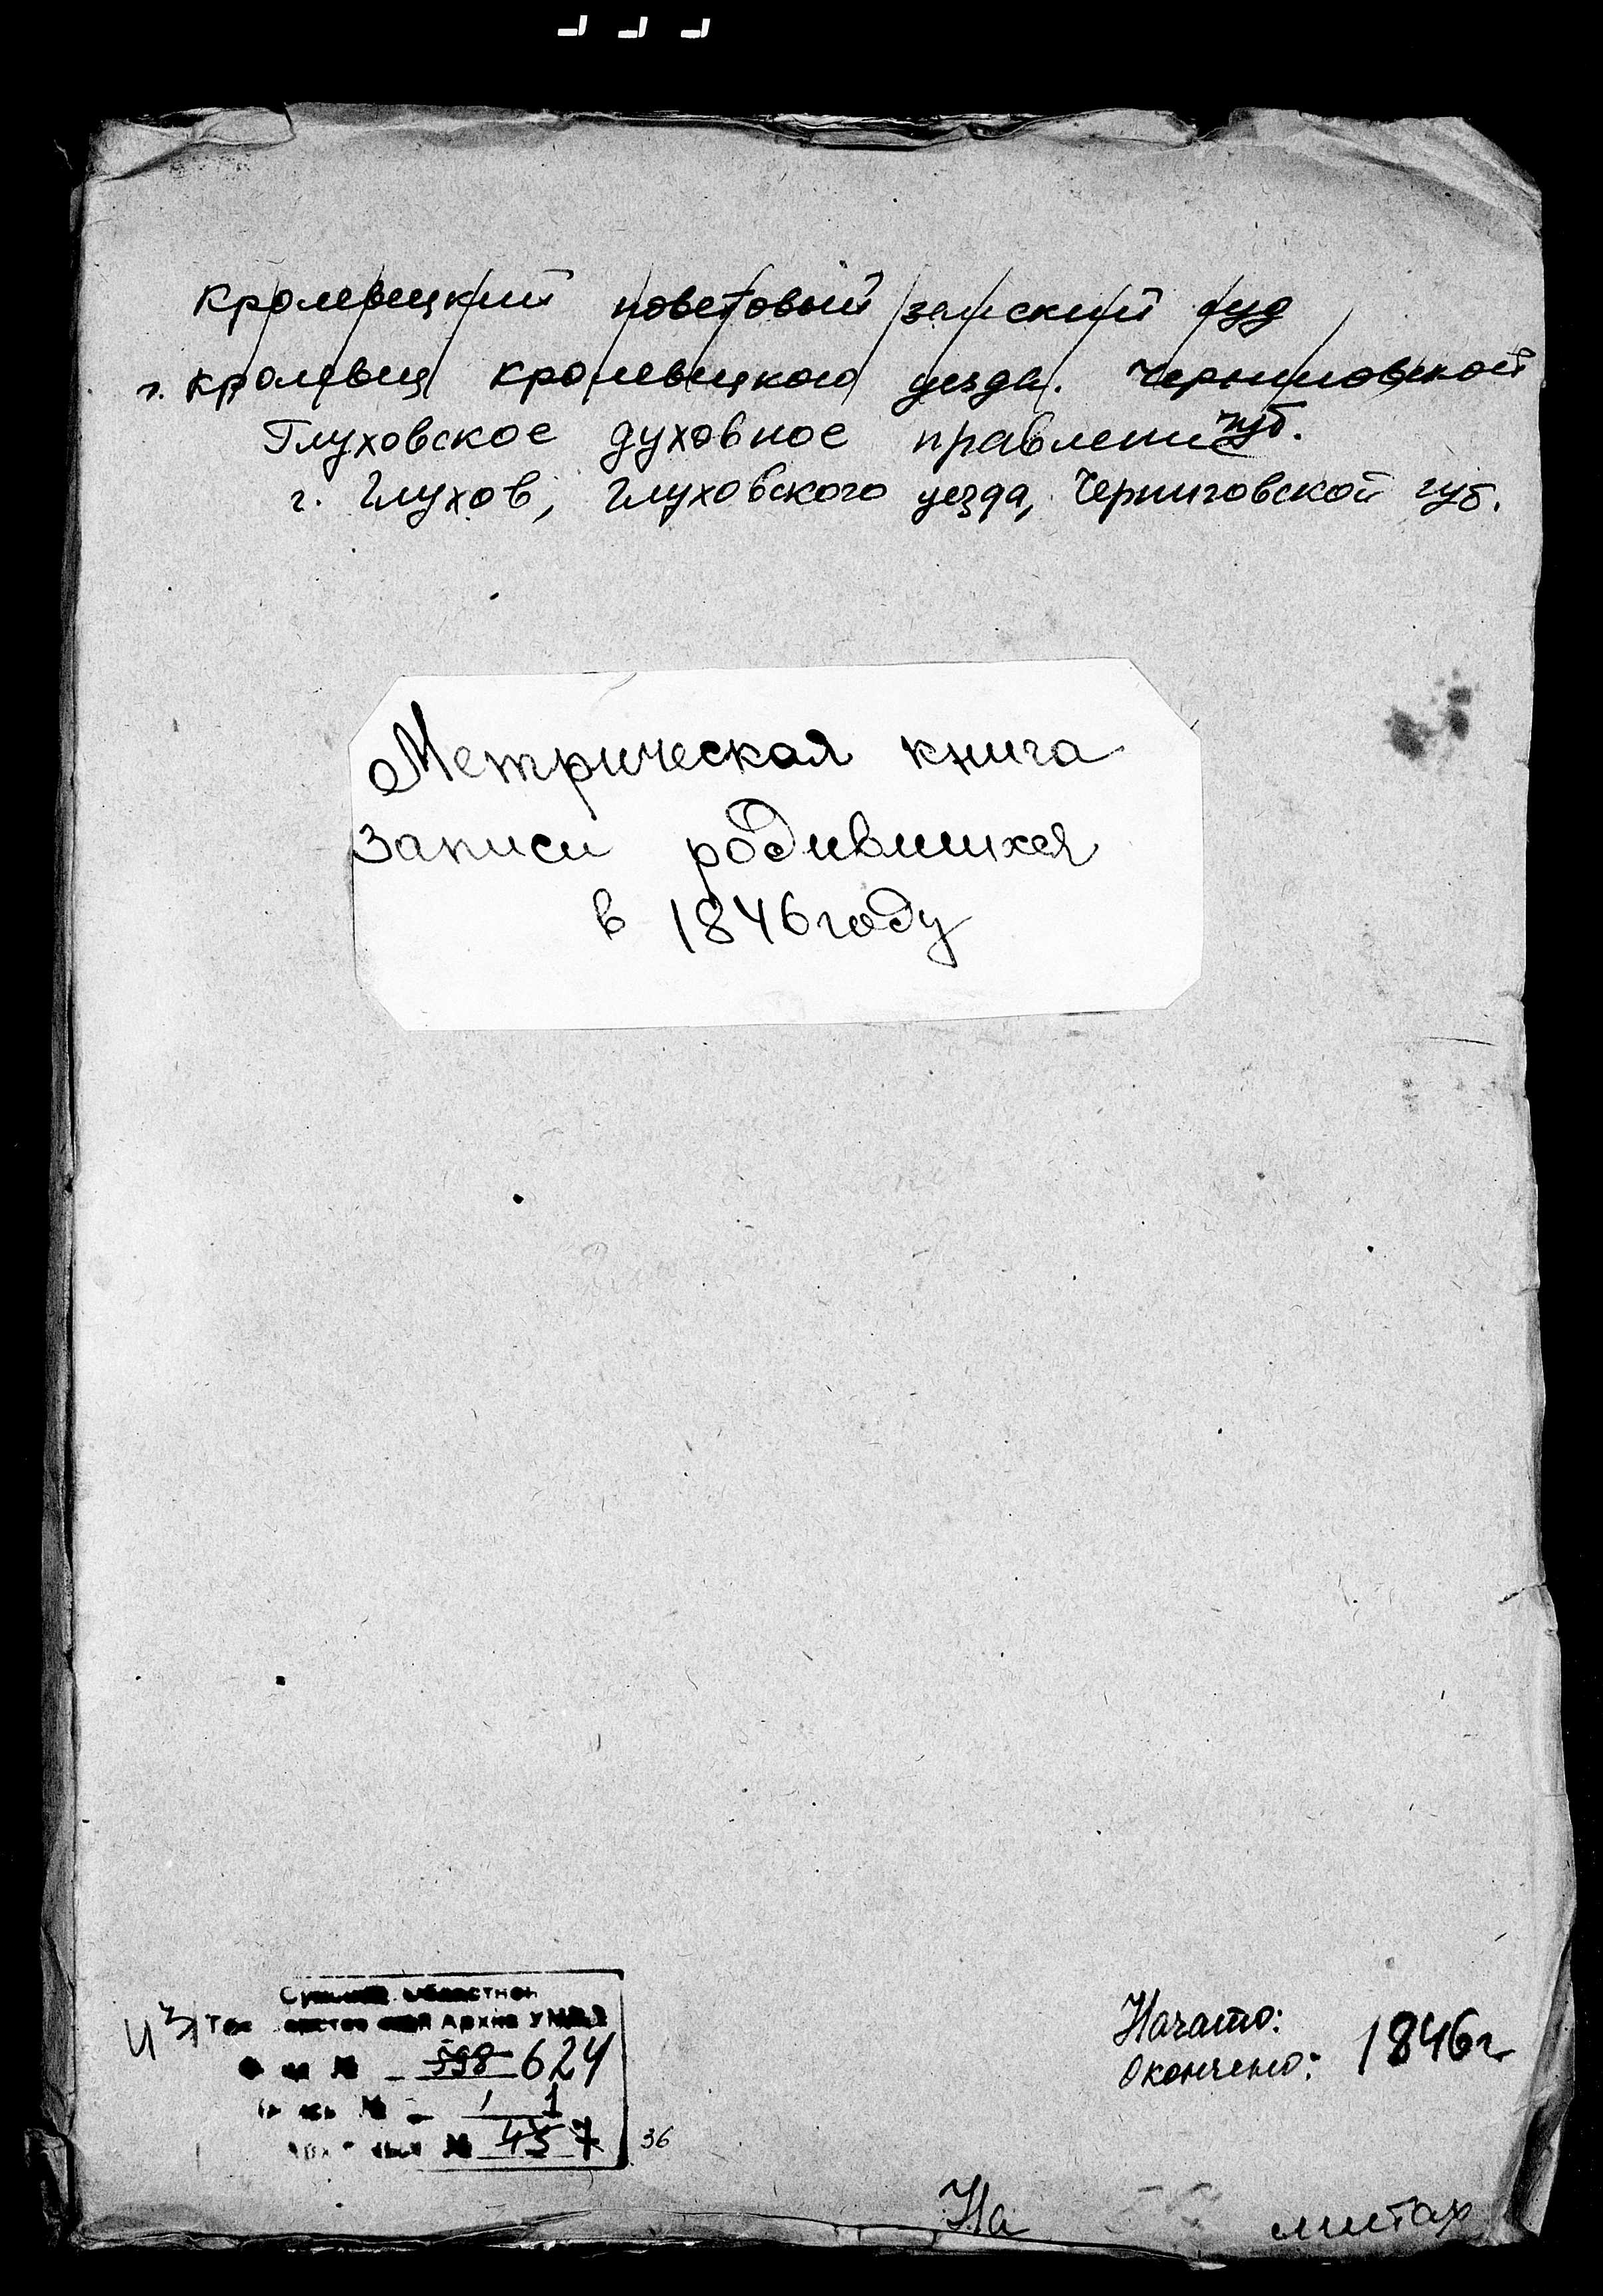 Кролевецкий поветовый земский суд
г. Кролевец Кролевецкого уезда. Черниговской
губ.
Глуховское духовное правление
г. Глухов, Глуховского уезда, Черниговской губ.
Метрическая книга
записи родившихся
в 1846 году
областной
Архив
№ 598 624
№ 1 1
№ 45 7
36
Начато:
Окончено: 1846 г
На листах